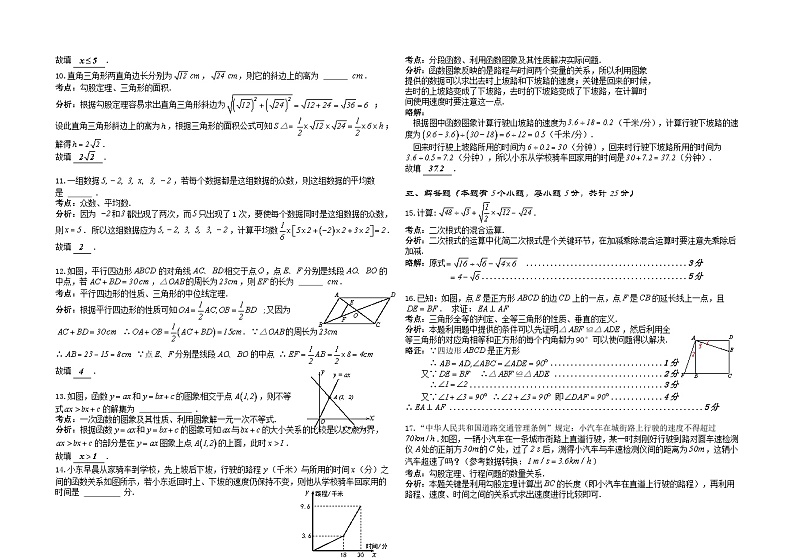 故填 x≤5 .
10.直角三角形两直角边长分别为√12 cm，√24 cm，则它的斜边上的高为 ______ cm.
考点：勾股定理、三角形的面积.
分析：根据勾股定理容易求出直角三角形斜边为√((√12)²+(√24)²)=√(12+24)=√36=6 ；
设此直角三角形斜边上的高为h，根据三角形的面积公式可知S△=1/2×√12×√24=1/2×6×h；
解得h=2√2.
故填 2√2 .
11.一组数据5,-2,3,x,3,-2，若每个数据都是这组数据的众数，则这组数据的平均数
是 ______ .
考点：众数、平均数.
分析：因为 -2和3都出现了两次，而5只出现了1次，要使每个数据同时是这组数据的众数，
则x=5．所以这组数据应为5,-2,3,5,3,-2，计算平均数1/6×[5×2+(-2)×2+3×2]=2.
故填 2 .
12.如图，平行四边形ABCD的对角线AC、BD相交于点O，点E、F分别是线段AO、BO的
中点，若AC+BD=30cm，△OAB的周长为23cm，则EF的长为 ______ cm.
考点：平行四边形的性质、三角形的中位线定理.
分析：根据平行四边形的性质可知OA=1/2AC,OB=1/2BD ;又因为
AC+BD=30cm ∴OA+OB=1/2(AC+BD)=15cm．∵△OAB的周长为23cm
∴AB=23-15=8cm ∵点E、F分别是线段AO、BO的中点 ∴EF=1/2AB=1/2×8=4cm
故填 4 .
A
D
E
O
F
B
C
13.如图，函数y=ax和y=bx+c的图象相交于点A(1,2)，则不等
式ax>bx+c的解集为 ______ .
考点：一次函数的图象及其性质、利用图象解一元一次不等式.
分析：根据函数y=ax和y=bx+c的图象可知ax与bx+c的大小关系的比较是以交点为界，
ax>bx+c的部分是在y=ax图象上点A(1,2)的上面，此时x>1．
故填 x>1 .
y
y = ax
A (1, 2)
x
14.小东早晨从家骑车到学校，先上坡后下坡，行驶的路程y（千米）与所用的时间x（分）之
间的函数关系如图所示，若小东返回时上、下坡的速度仍保持不变，则他从学校骑车回家用的
时间是 ______ 分.
y 路程/千米
9.6
3.6
18
30
x
时间/分
考点：分段函数、利用函数图象及其性质解决实际问题.
分析：函数图象反映的是路程与时间两个变量的关系，所以利用图象
提供的数据可以求出去时上坡路和下坡路的速度；关键是回来的时候，
去时的上坡路变成了下坡路，去时的下坡路变成了上坡路，在计算时
间使用速度时要注意这一点.
略解：
根据图中函数图象计算行驶山坡路的速度为3.6÷18=0.2(千米/分)，计算行驶下坡路的速
度为(9.6-3.6)÷(30-18)=6÷12=0.5(千米/分).
回来时行驶上坡路所用的时间为6÷0.2=30（分钟），回来时行驶下坡路所用的时间为
3.6÷0.5=7.2（分钟），所以小东从学校骑车回家用的时间是30+7.2=37.2（分钟）.
故填 37.2 .
三、解答题（本题有5个小题，每小题5分，共计25分）
15.计算：√48÷√3+√(1/2)×√12-√24.
考点：二次根式的混合运算.
分析：二次根式的运算中化简二次根式是个关键环节，在加减乘除混合运算时要注意先乘除后
加减.
略解：原式=√16+√6-√(4×6) ........................................3分
=4-√6........................................5分
16.已知：如图，点E是正方形ABCD的边CD上的一点，点F是CB的延长线上一点，且
DE=BF．求证：EA⊥AF
考点：三角形全等的判定、全等三角形的性质、垂直的定义.
分析：本题利用题中提供的条件可以先证明△ABF≌△ADE，然后利用全
等三角形的对应角相等和正方形的每个内角都为90°可以使问题得以解决.
略证：∵四边形ABCD是正方形
∴AB=AD,∠ABC=∠ADE=90°........................................1分
又∵DE=BF ∴△ABF≌△ADE ........................................2分
∴∠1=∠2........................................3分
又∵∠1+∠3=90° ∴∠2+∠3=90° 即∠DAF=90°........................................4分
∴EA⊥AF ........................................5分
A
D
E
F
B
C
17.“中华人民共和国道路交通管理条例”规定：小汽车在城街路上行驶的速度不得超过
70km/h．如图，一辆小汽车在一条城市街路上直道行驶，某一时刻刚好行驶到路对面车速检测
仪A处的正前方30m的C处，过了2s后，测得小汽车与车速检测仪间的距离为50m，这辆小
汽车超速了吗？（参考数据转换：1m/s=3.6km/h）
考点：勾股定理、行程问题的数量关系.
分析：本题关键是利用勾股定理计算出BC的长度（即小汽车在直道上行驶的路程），再利用
路程、速度、时间之间的关系式求出速度进行比较即可.